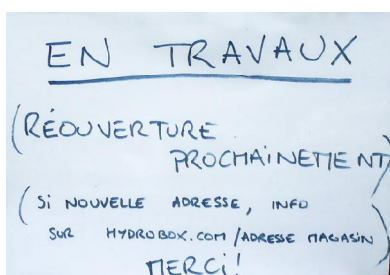 EN TRAVAUX
(RÉOUVERTURE
PROCHAINEMENT)
(SI NOUVELLE ADRESSE, INFO
SUR HYDROBOX.COM/ADRESSE MAGASIN)
MERCI!